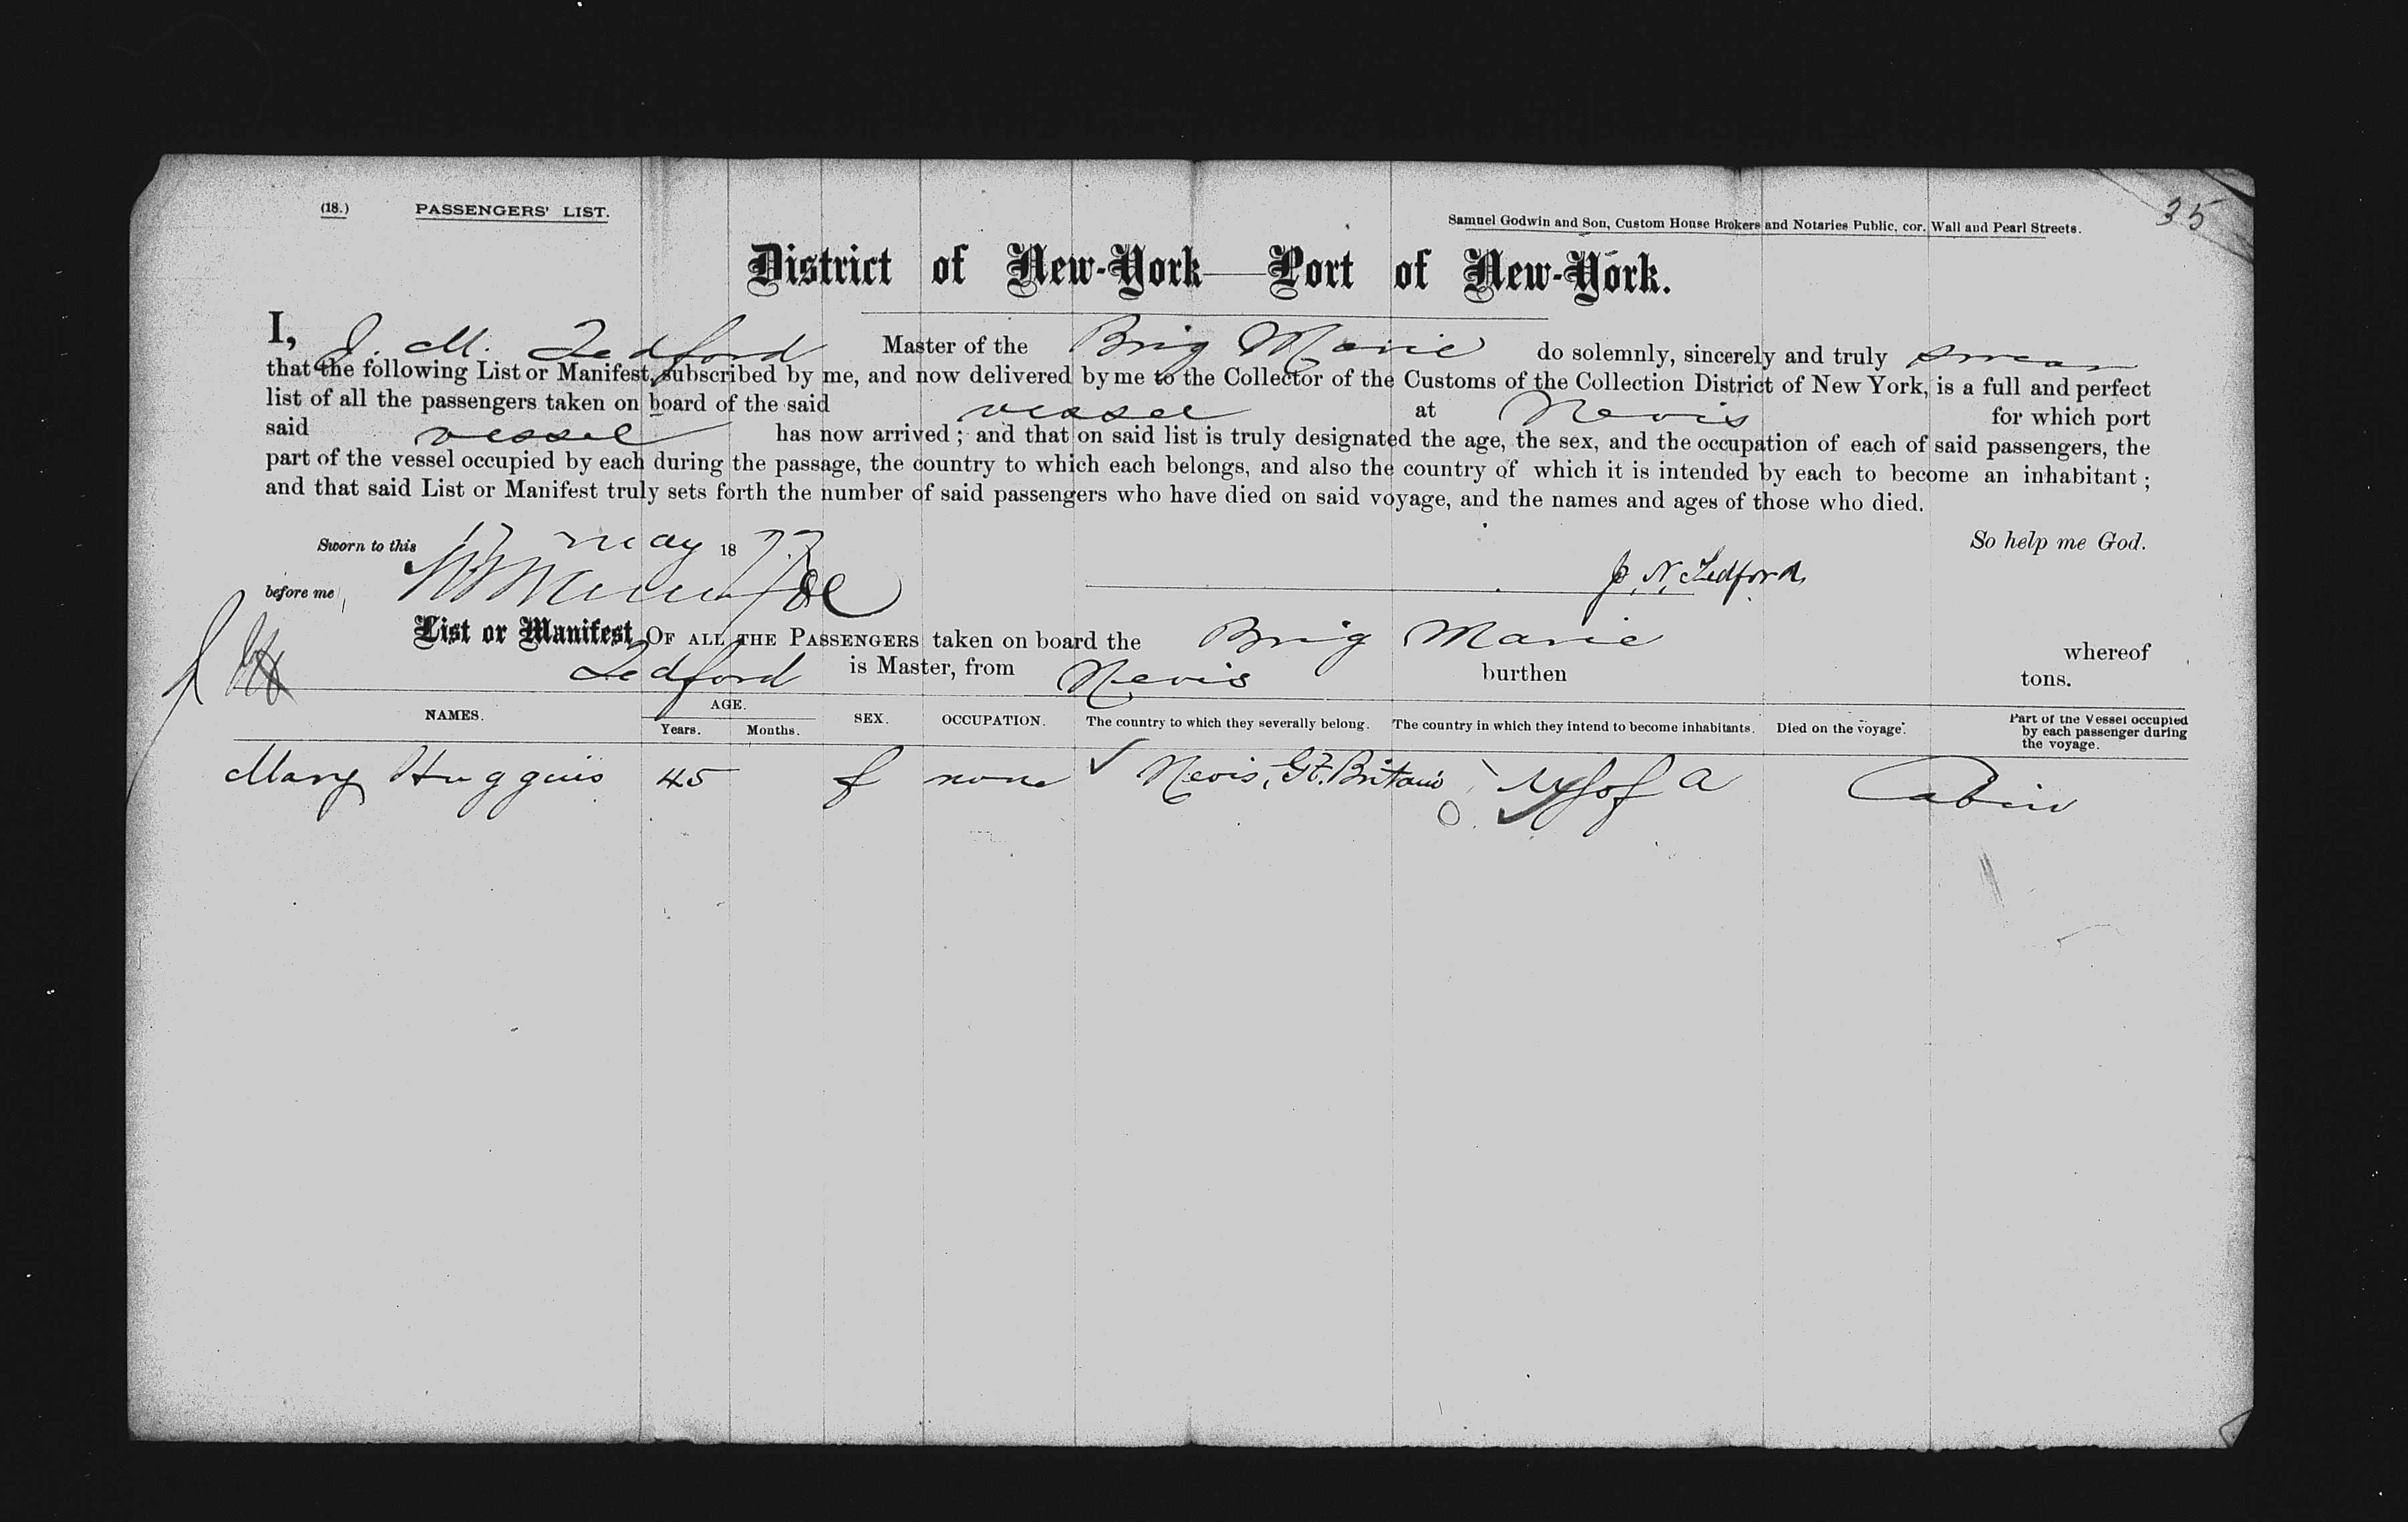 (18.) PASSENGERS' LIST. Samuel Godwin and Son, Custom House Brokers and Notaries Public, cor. Wall and Pearl Streets. 35
District of New-York—Port of New-York.
I, J. M. Tedford Master of the Brig Marie do solemnly, sincerely and truly swear
that the following List or Manifest, subscribed by me, and now delivered by me to the Collector of the Customs of the Collection District of New York, is a full and perfect
list of all the passengers taken on board of the said vessel at Nevis for which port
said vessel has now arrived; and that on said list is truly designated the age, the sex, and the occupation of each of said passengers, the
part of the vessel occupied by each during the passage, the country to which each belongs, and also the country of which it is intended by each to become an inhabitant;
and that said List or Manifest truly sets forth the number of said passengers who have died on said voyage, and the names and ages of those who died.
Sworn to this 17 May 1877 So help me God.
before me J. N. Tedford
List or Manifest OF ALL THE PASSENGERS taken on board the Brig Marie whereof
Tedford is Master, from Nevis burthen tons.
NAMES. AGE. Years. Months. SEX. OCCUPATION. The country to which they severally belong. The country in which they intend to become inhabitants. Died on the voyage. Part of the Vessel occupied by each passenger during the voyage.
Mary Huggins 45 f none Nevis, Gt. Britain U S of A Cabin